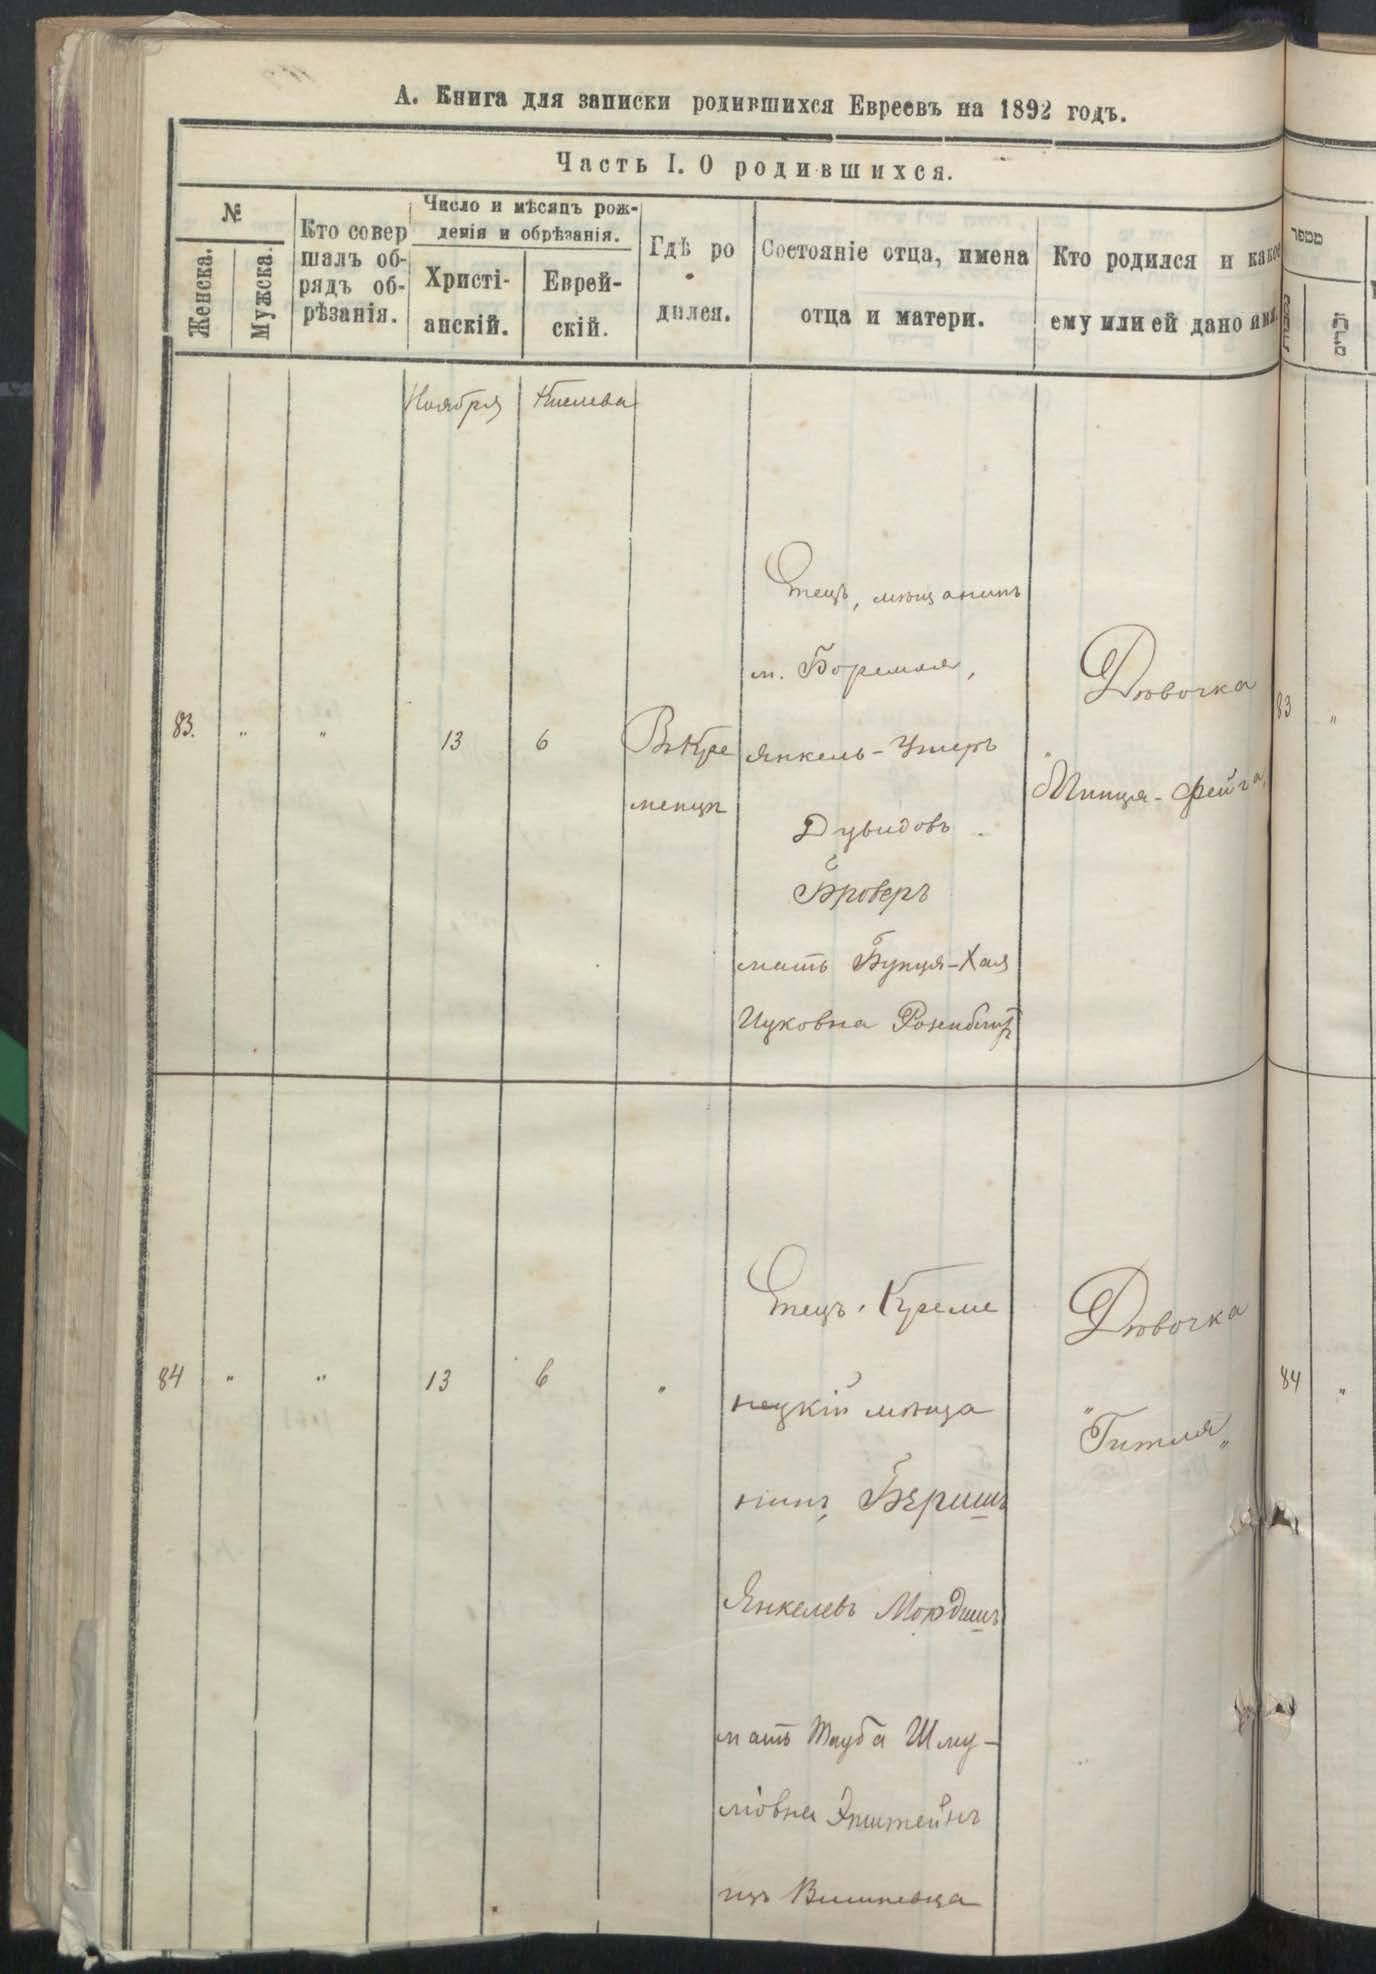 А. Книга для записки родившихся Евреевъ на 1892 годъ.
Часть I. О родившихся.
№
Женска.
Мужска.
Кто совер
шалъ об-
рядъ об-
рѣзанія.
Число и мѣсяцъ рож-
денія и обрѣзанія.
Христі-
анскій.
Еврей-
скій.
Гдѣ ро
дился.
Состояніе отца, имена
отца и матери.
Кто родился и какое
ему или ей дано имя.
מספר
נקבות
זכרים
Ноября
Кислева
83.
"
"
13
6
Въ Кре
менцѣ
Отецъ, мѣщанинъ
м. Боремля,
Янкель-Ушеръ
Дувидовъ
Броверъ
мать Бунця-Хая
Ицковна Розенблитъ
Дѣвочка
"Минця-Фейга"
83
"
84
"
"
13
6
"
Отецъ, Креме
нецкій мѣща
нинъ, Беришъ
Янкелевъ Мордишъ
мать Тауба Шму-
ліовна Эпштейнъ
изъ Вишневца
Дѣвочка
"Гитля"
84
"